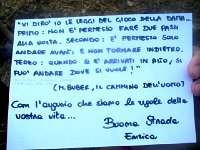 "VI DIRÒ IO LE LEGGI DEL GIOCO DELLA DAMA...
PRIMO: NON È PERMESSO FARE DUE PASSI
ALLA VOLTA. SECONDO: È PERMESSO SOLO
ANDARE AVANTI E NON TORNARE INDIETRO.
TERZO: QUANDO SI È ARRIVATI IN ALTO, SI
PUÒ ANDARE DOVE SI VUOLE!"
(M. BUBER, IL CAMMINO DELL'UOMO)
Con l'augurio che siano le regole della
vostra vita...
Buona Strada
Enrica